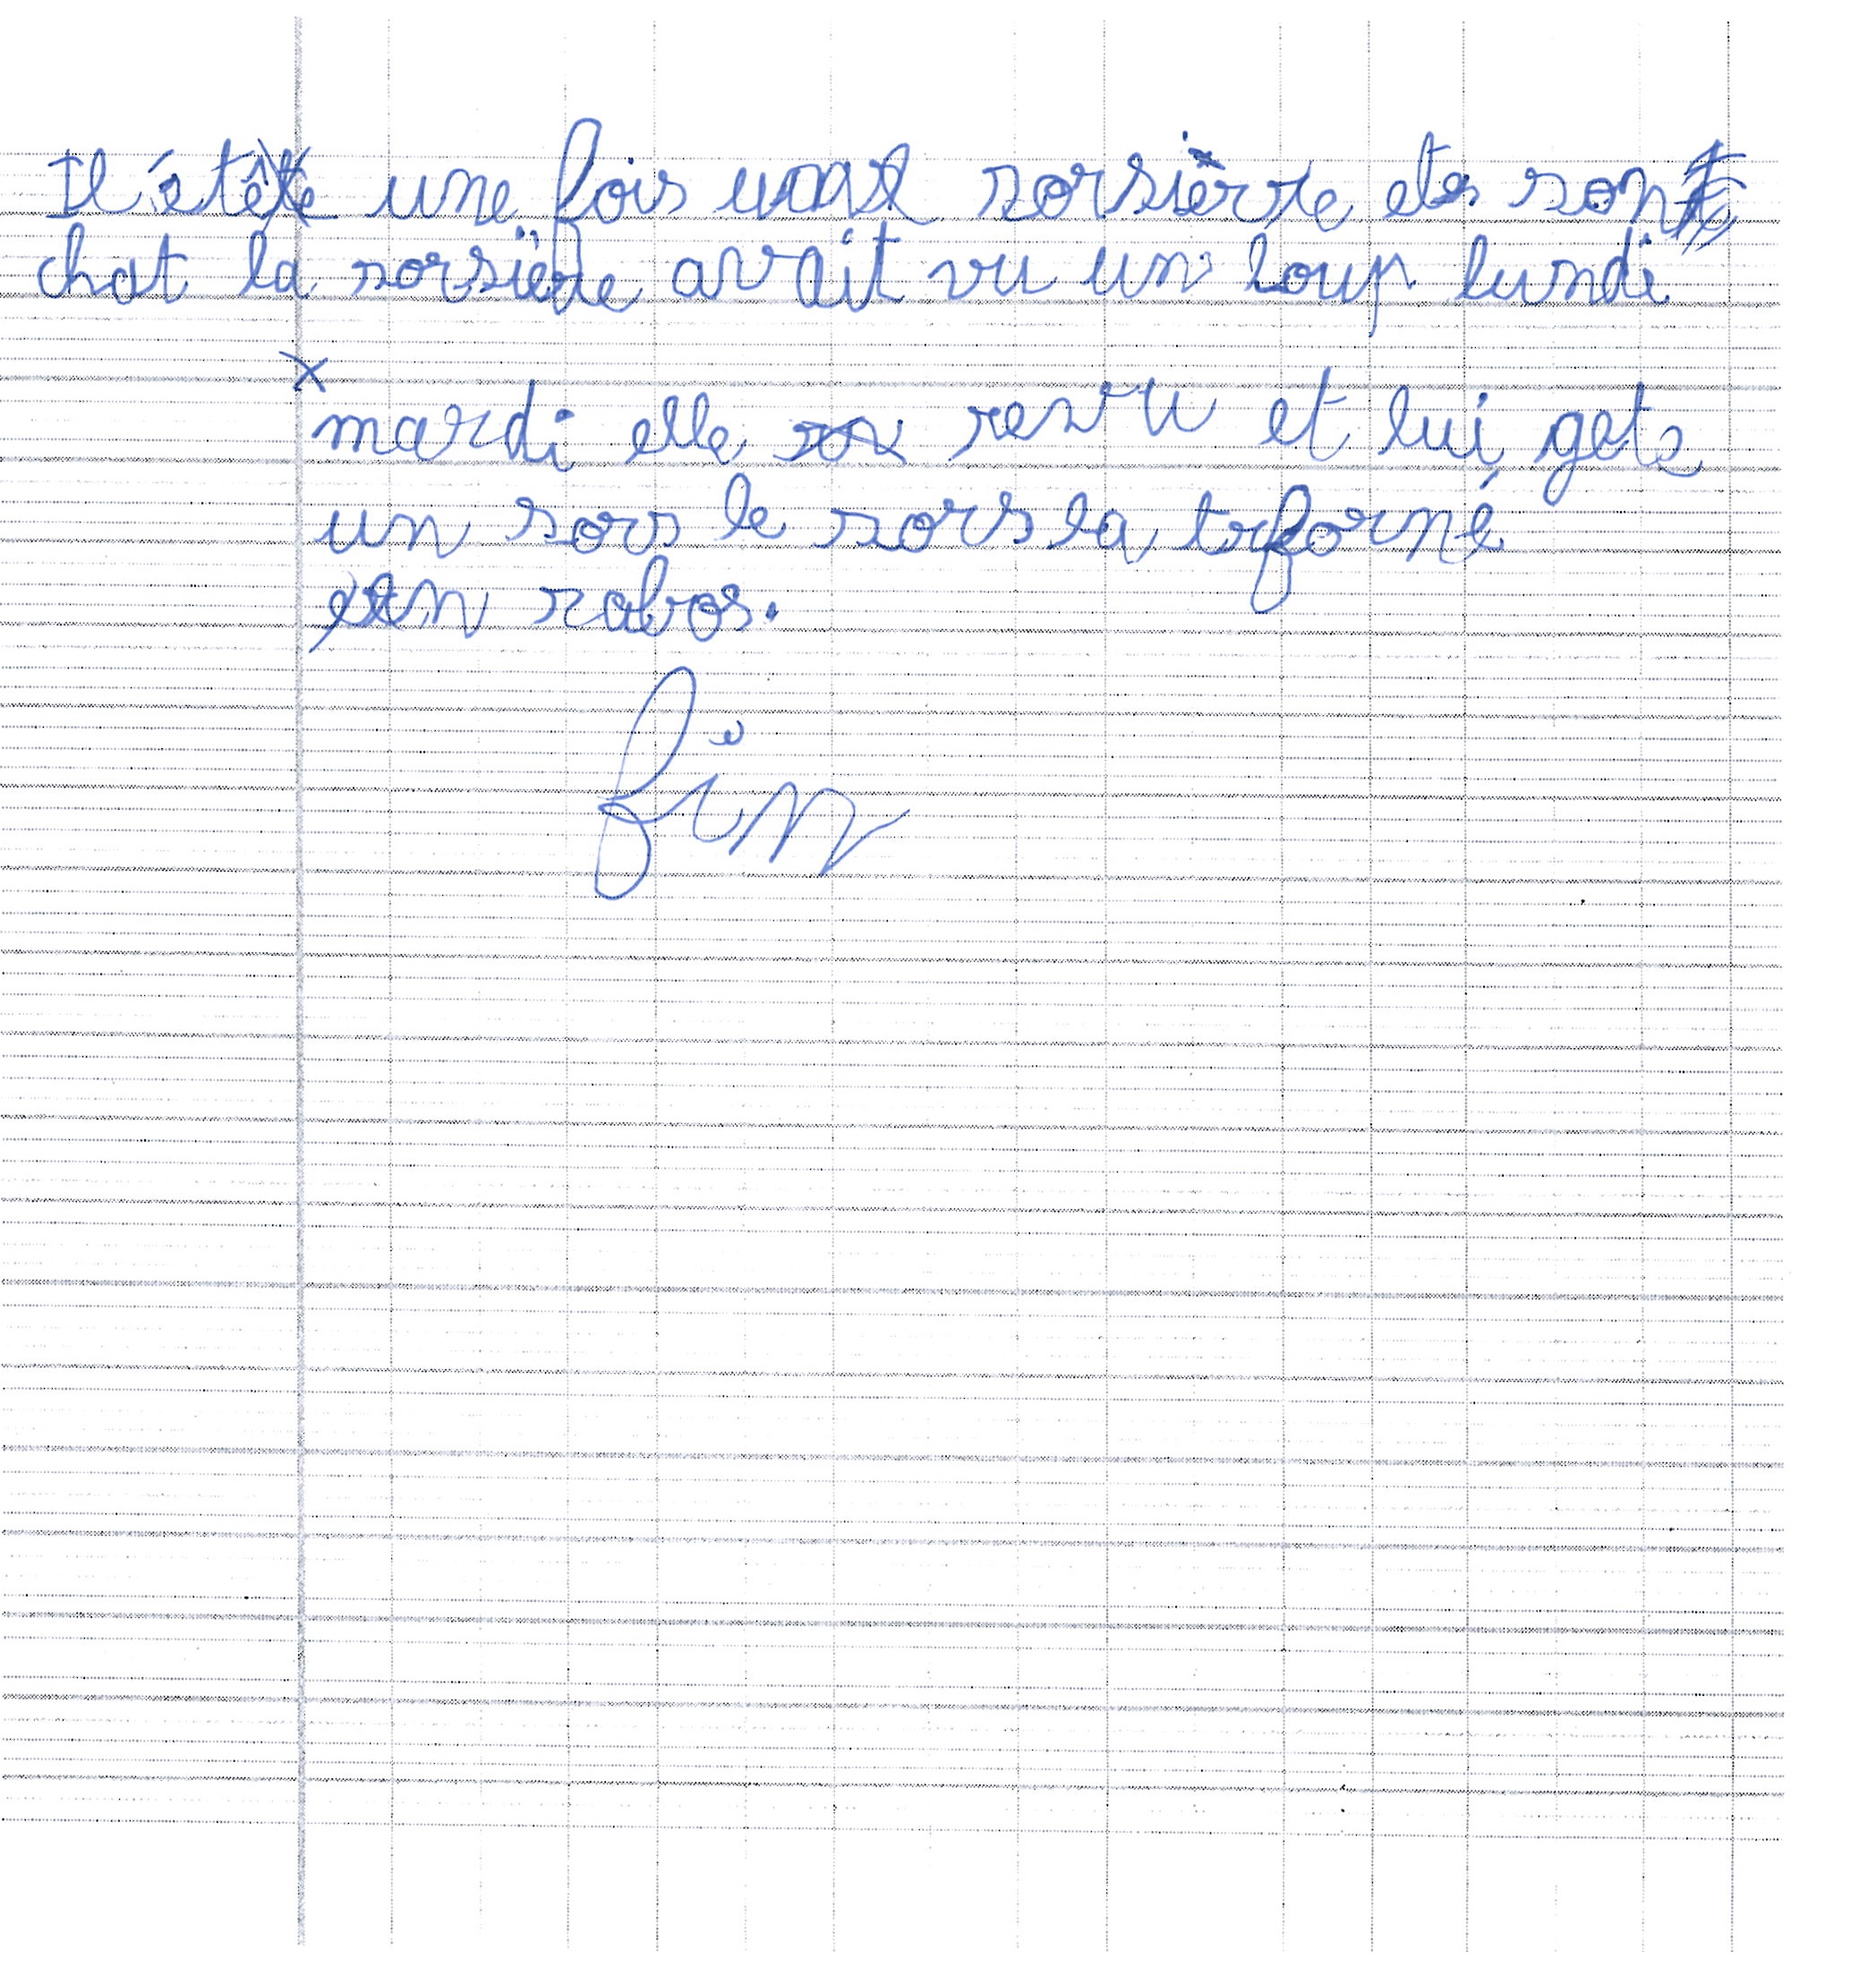 Il étê une fois une sorsière et son
chat la sorsière avait vu un loup lundi
mardi elle revu et lui gete
un sors le sors la trformé
en robos.
fin